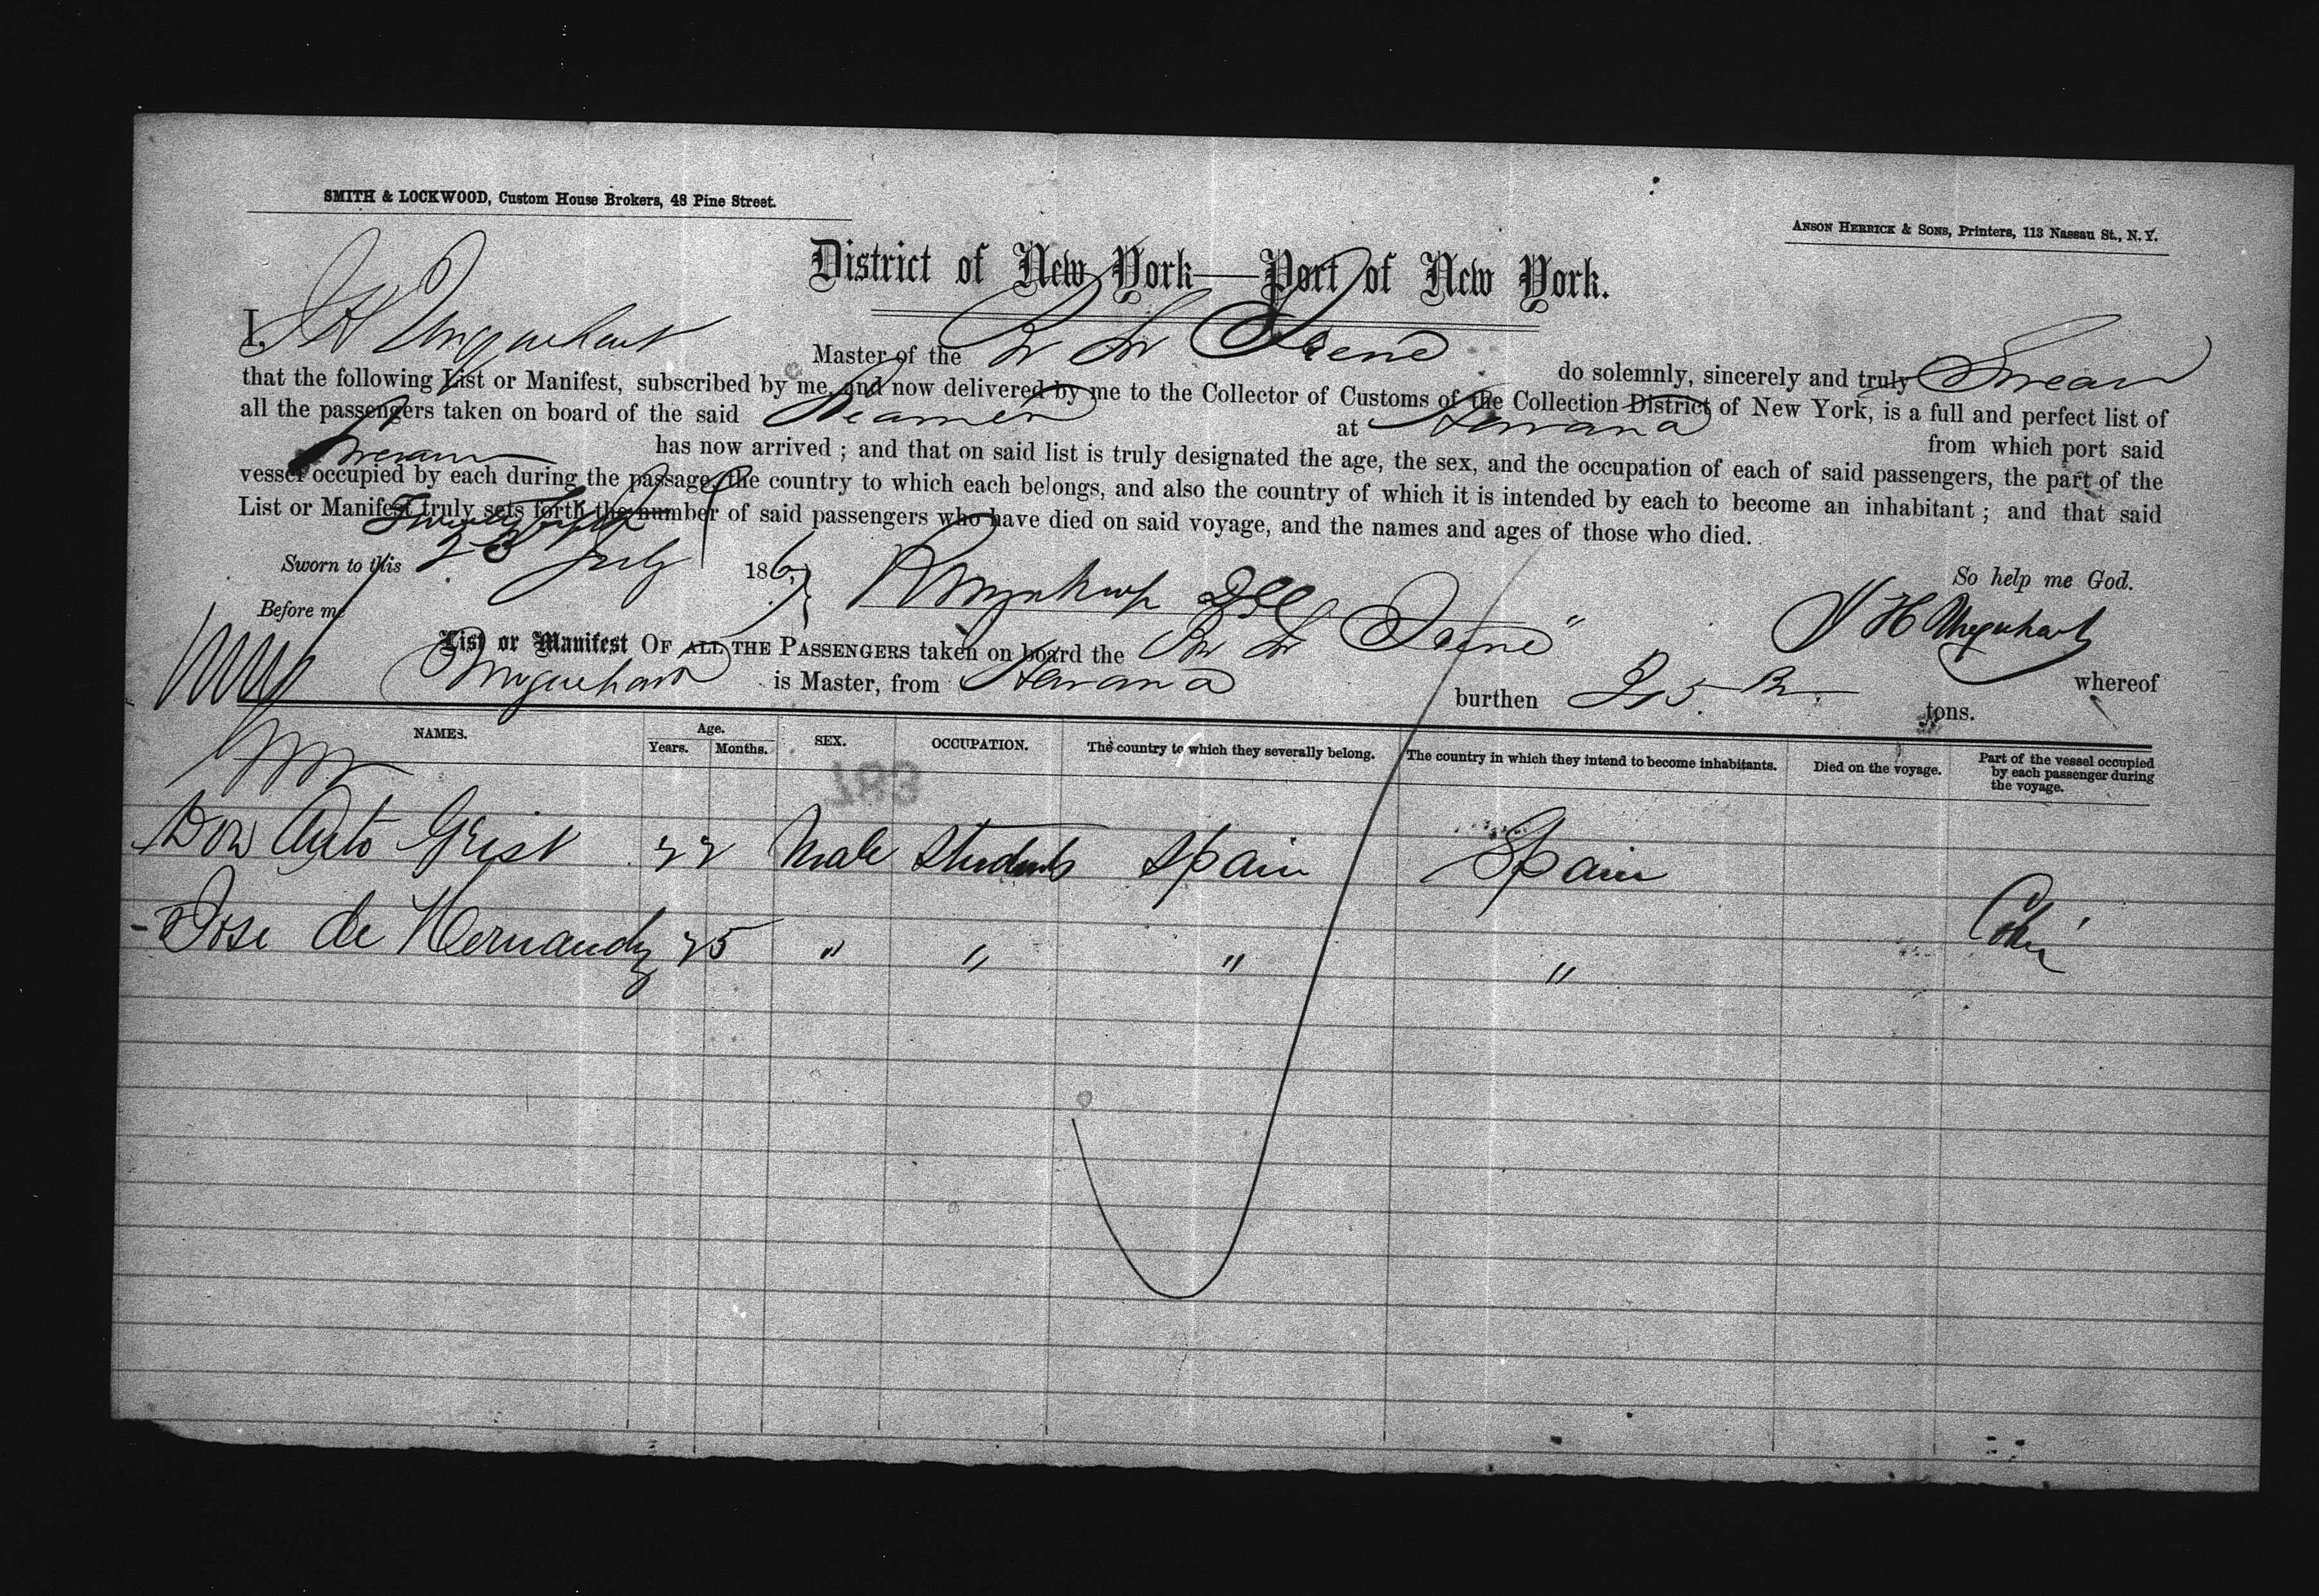 SMITH & LOCKWOOD, Custom House Brokers, 48 Pine Street.
ANSON HERRICK & SONS, Printers, 113 Nassau St., N. Y.
District of New York—Port of New York.
I, J H Urquehart Master of the Br Str Irene do solemnly, sincerely and truly Swear
that the following List or Manifest, subscribed by me, and now delivered by me to the Collector of Customs of the Collection District of New York, is a full and perfect list of
all the passengers taken on board of the said Steamer at Havana from which port said
Steamer has now arrived ; and that on said list is truly designated the age, the sex, and the occupation of each of said passengers, the part of the
vessel occupied by each during the passage, the country to which each belongs, and also the country of which it is intended by each to become an inhabitant ; and that said
List or Manifest truly sets forth the number of said passengers who have died on said voyage, and the names and ages of those who died.
So help me God.
Sworn to this July 186
J H Urquehart
Before me
List or Manifest OF ALL THE PASSENGERS taken on board the Br Str Irene whereof
Urquehart is Master, from Havana burthen tons.
NAMES. Age. Years. Months. SEX. OCCUPATION. The country to which they severally belong. The country in which they intend to become inhabitants. Died on the voyage. Part of the vessel occupied by each passenger during the voyage.
Don 22 Male Students Spain Spain
Jose de Hernandz 25 " " " "